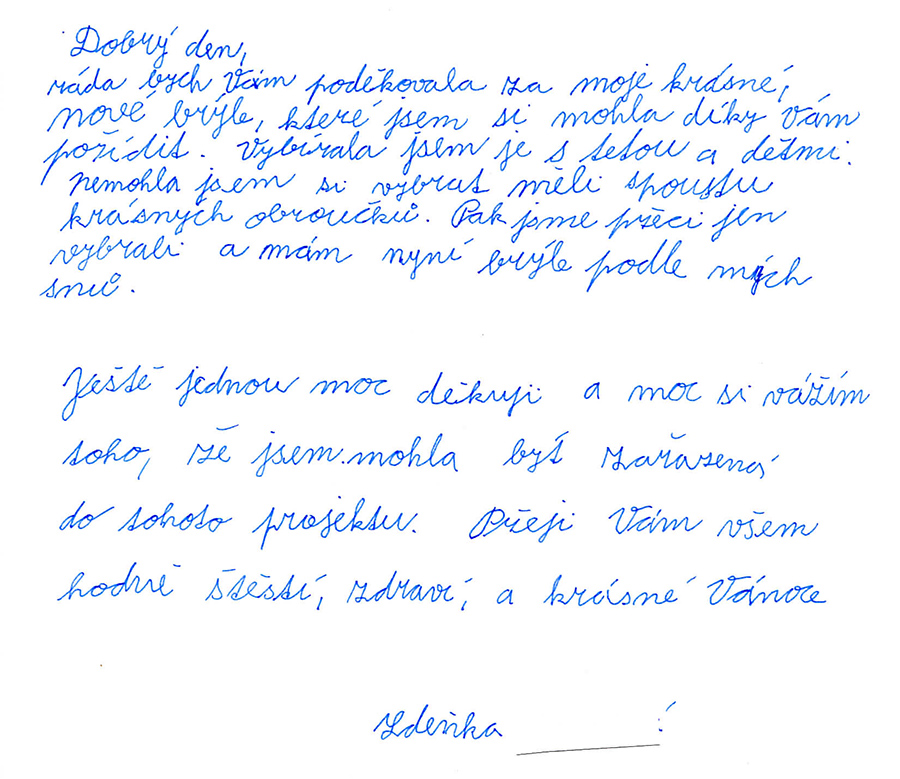 Dobrý den,
ráda bych Vám poděkovala za moje krásné,
nové brýle, které jsem si mohla díky vám
pořídit. Vybírala jsem je s tetou a dětmi.
nemohla jsem si vybrat měli spoustu
krásných obroučků. Pak jsme přeci jen
vybrali a mám nyní brýle podle mých
snů.
Ještě jednou moc děkuji a moc si vážím
toho, že jsem mohla být zařazená
do tohoto projektu. Přeji Vám všem
hodně štěstí, zdraví, a krásné Vánoce
Zdeňka